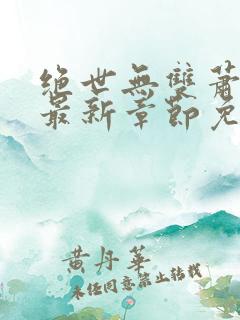 絕世無雙蕭
最新章節免
黃丹華
未經同意禁止轉載